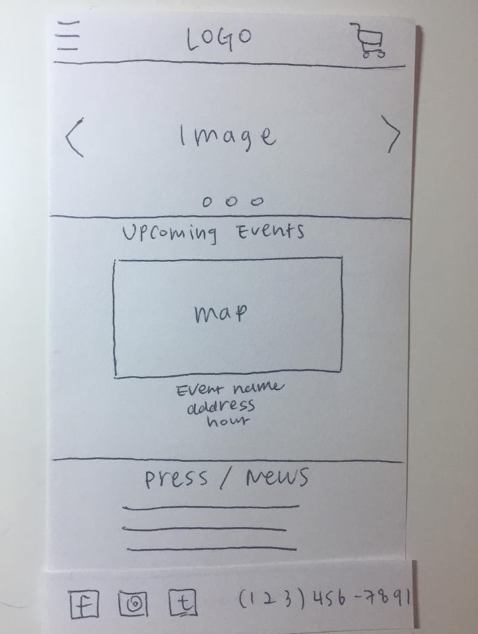 LOGO
Image
Upcoming Events
map
Event name
address
hour
press / News
f t (123)456-7891